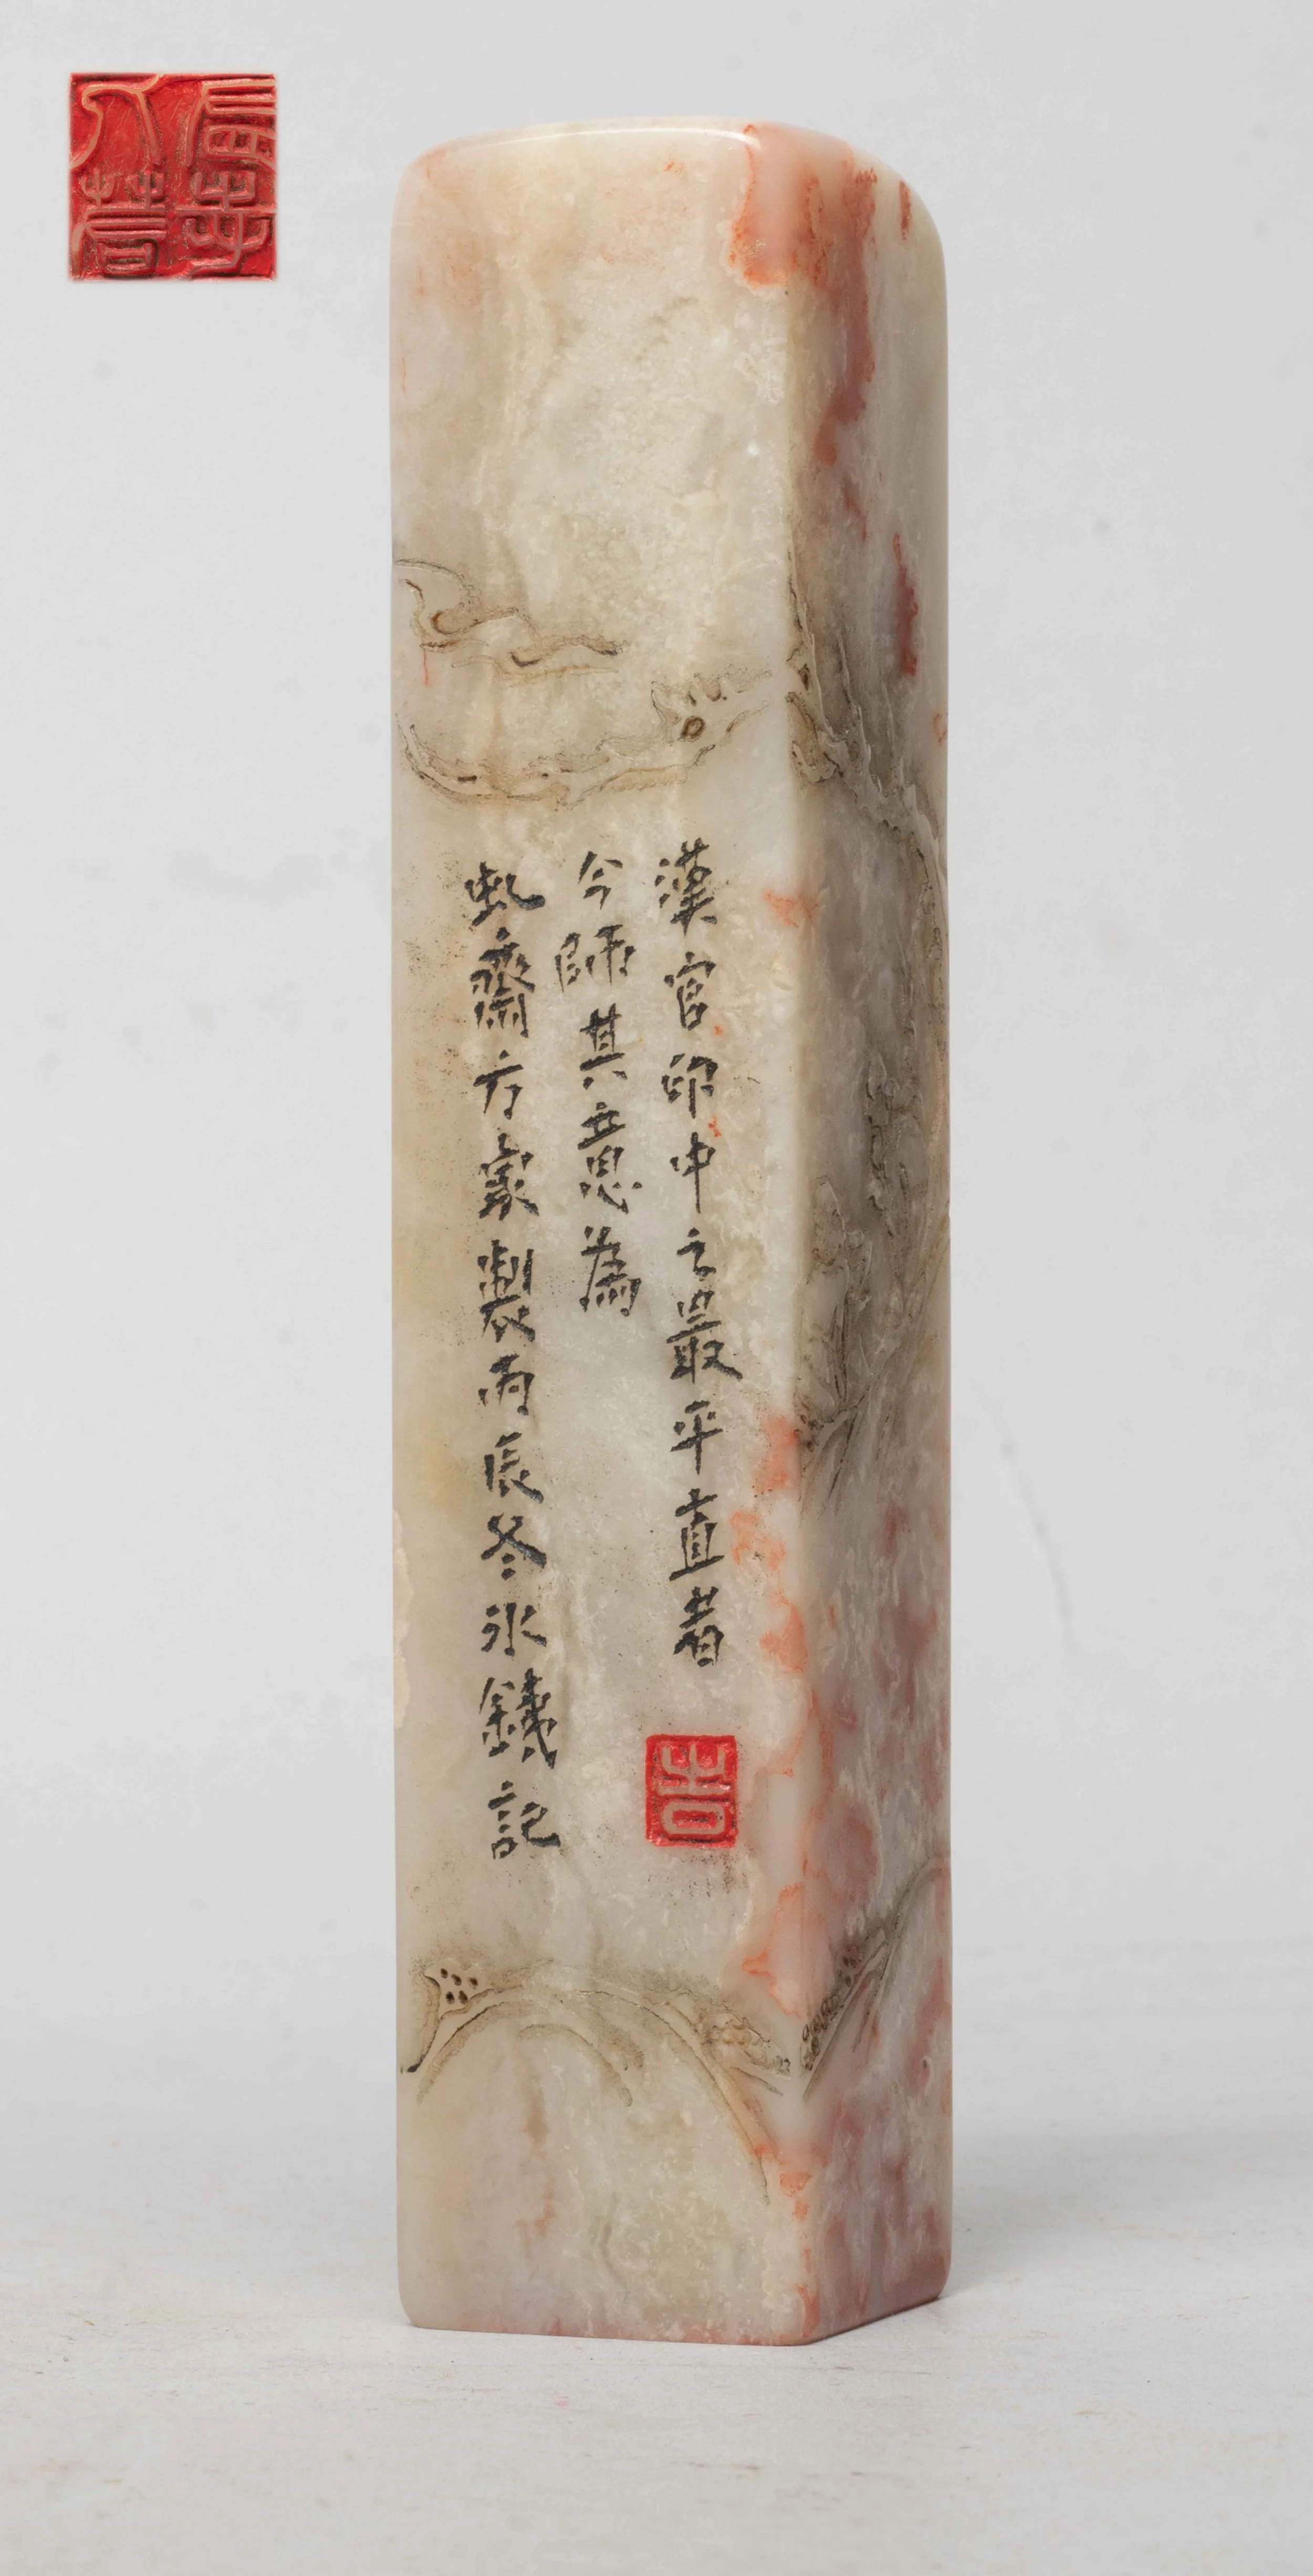 漢官印中之最平直者
今師其意為
虬齋方家製丙辰冬冰鐵記
吉